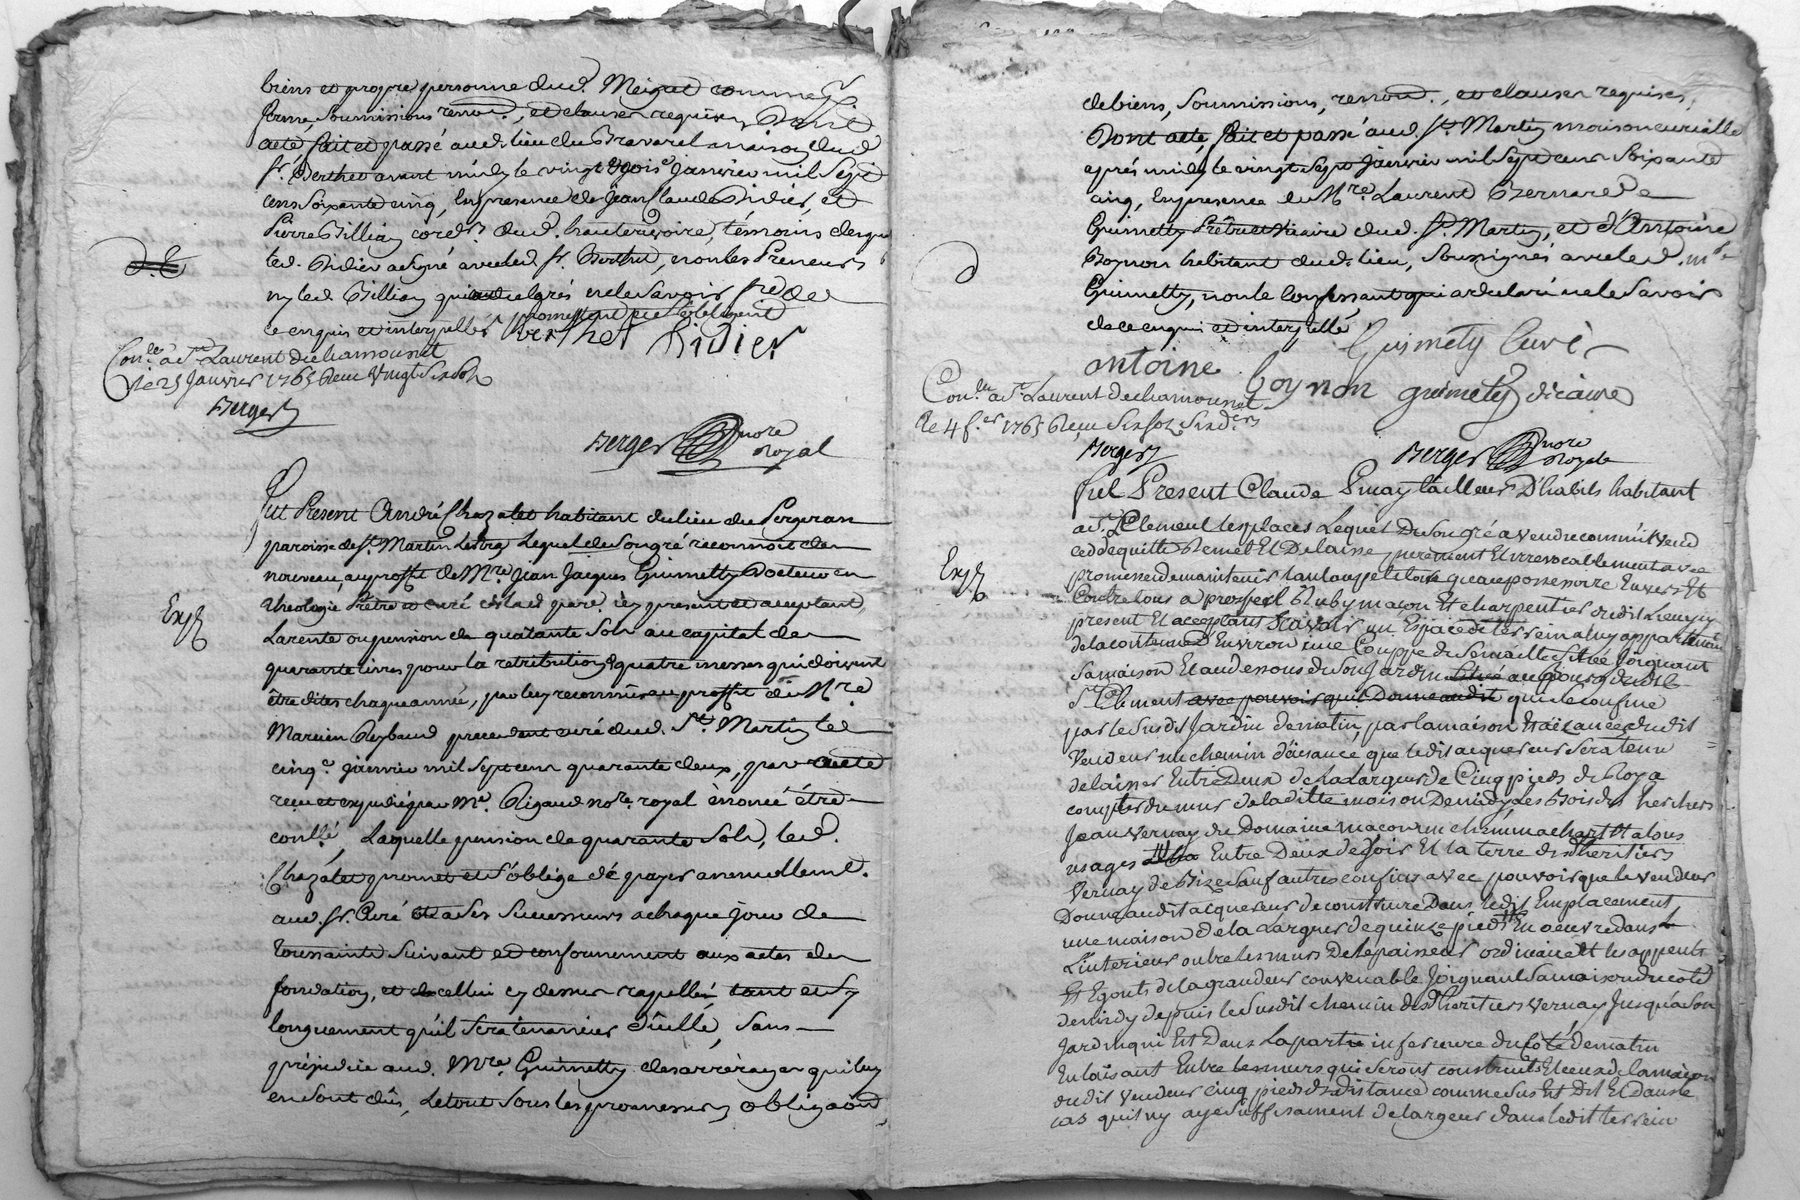 biens et propre personne dud. Meigret comme
ferme, soumissions renon. , et clauses requises Dont
acte fait et passé aud. lieu du Travarel maison dud
sr. Berthet avant midy le vingt trois janvier mil sept
cens soixante cinq, En presence de Jean Claude Didier, et
Pierre Billiay cord.r dud. hauterivoire, témoins desquels
led. Didier a signé avec led. sr. Berthet, non les Preneurs
ny led. Billiay qui ne le savoir
de ce enquis et interpellés
Berthet Didier
Con.lé à St. Laurent de chamousset
le 25 janvier 1765 Reçu vingt six sols
Berger
Berger nore
royal
Fut Present André Chazalet habitant du lieu du Pergeran
paroisse de St. Martin Lestra Lequel de son gré reconnoit de
nouveau, au proffit de Mre. Jean Jacques Guimetty Docteur en
theologie Prêtre et curé dela d. paroi. icy present et acceptant,
Exp.
La rente ou pension de quarante sols au capital de
quarante livres pour la retribution de quatre messes qui doivent
être dites chaque année, par luy reconnüe au proffit de Mre.
Marcien Reybaud precedent curé dud. St. Martin le
cinq.e janvier mil sept cens quarante deux, par acte
recu et expedié par Me. Rigaud nore royal ènoncé être
conllé, Laquelle pension de quarante sols, led.
Chazalet promet et s'oblige de payer annuellemt.
aud. sr. Curé et a ses successeurs a chaque jour de
toussaints suivant et conformement aux actes de
fondation, et celluy cy dessus rapellés tant et sy
longuement qu'il sera tenancier d'icelle, sans
préjudice aud. Mre. Guimetty des arrèrages qui luy
en sont dûs, Le tout sous les promesses, obligaõns
de biens, Soumissions, renon. , et clauses requises,
Dont acte, fait et passé aud. St. Martin maison curialle
après midy le vingt sept janvier mil sept cens soixante
cinq, En presence de Mre. Laurent Bernard
Guimetty Prêtre et Vicaire dud. St. Martin, et d'Antoine
Boynon habitant dud. lieu, Soussignés avec led. mre.
Guimetty, non le Confessant qui a déclaré ne le savoir
de ce enquis et interpellé
Guimety Curé
antoine boynon guimety vicaire
Con.lu a St. Laurent de chamousset
le 4 f.er 1765 Reçu six sols six d.ers
Berger
Berger nore
Royal
Fut Present Claude Pinay tailleur D'habits habitant
a St. Clement les places Lequel De son gré a vendu comme il vend
cedde quitte Remet Et Delaisse purement Et irrevocablement avec
Exp.
promesse de maintenir Envers Et
Contre tous a Ruby maçon Et charpentier dudit Lieu icy
present Et acceptant Scavoir un Espace de terrein a luy appartenan
de la contenue D'Environ une Couppe de Semaille Situé Joignant
Sa maison Et au dessous de Son Jardin au Bourg dudit
St. Clement avec pouvoir qu'il Donne audit qui Se confine
par le Susdit Jardin de matin, par la maison Et aisance dudit
Vendeur un chemin d'aisance que ledit acquereur Sera tenu
de laisser Entre Deux de la Largeur de Cinq pieds de Roy a
compter du mur de la ditte maison De midy, Les Bois des heritiers
Jean Vernay du Domaine un chemin a
usages Entre Deux de Soir Et la terre desd. heritiers
Vernay de Bize Sauf autres confins avec pouvoir que le vendeur
Donne audit acquereur de construire Dans ledit Emplacement
une maison de la Largeur de quinze pieds En oeuvre dans
L'interieur outre les murs De l'Epaisseur ordinaire Et les appents
Et Egouts de la grandeur convenable Joignant Sa maison du coté
de midy depuis le Susdit chemin desd. heritiers Vernay Jusqu'a Son
Jardin qui Est Dans La partie inferieure du Coté de matin
En laissant Entre Les murs qui Seront construits Et ceux de la maison
dudit Vendeur cinq pieds de distance comme dessus Est Dit Et Dans le
cas qu'il n'y aye Suffisament de largeur dans ledit terrein